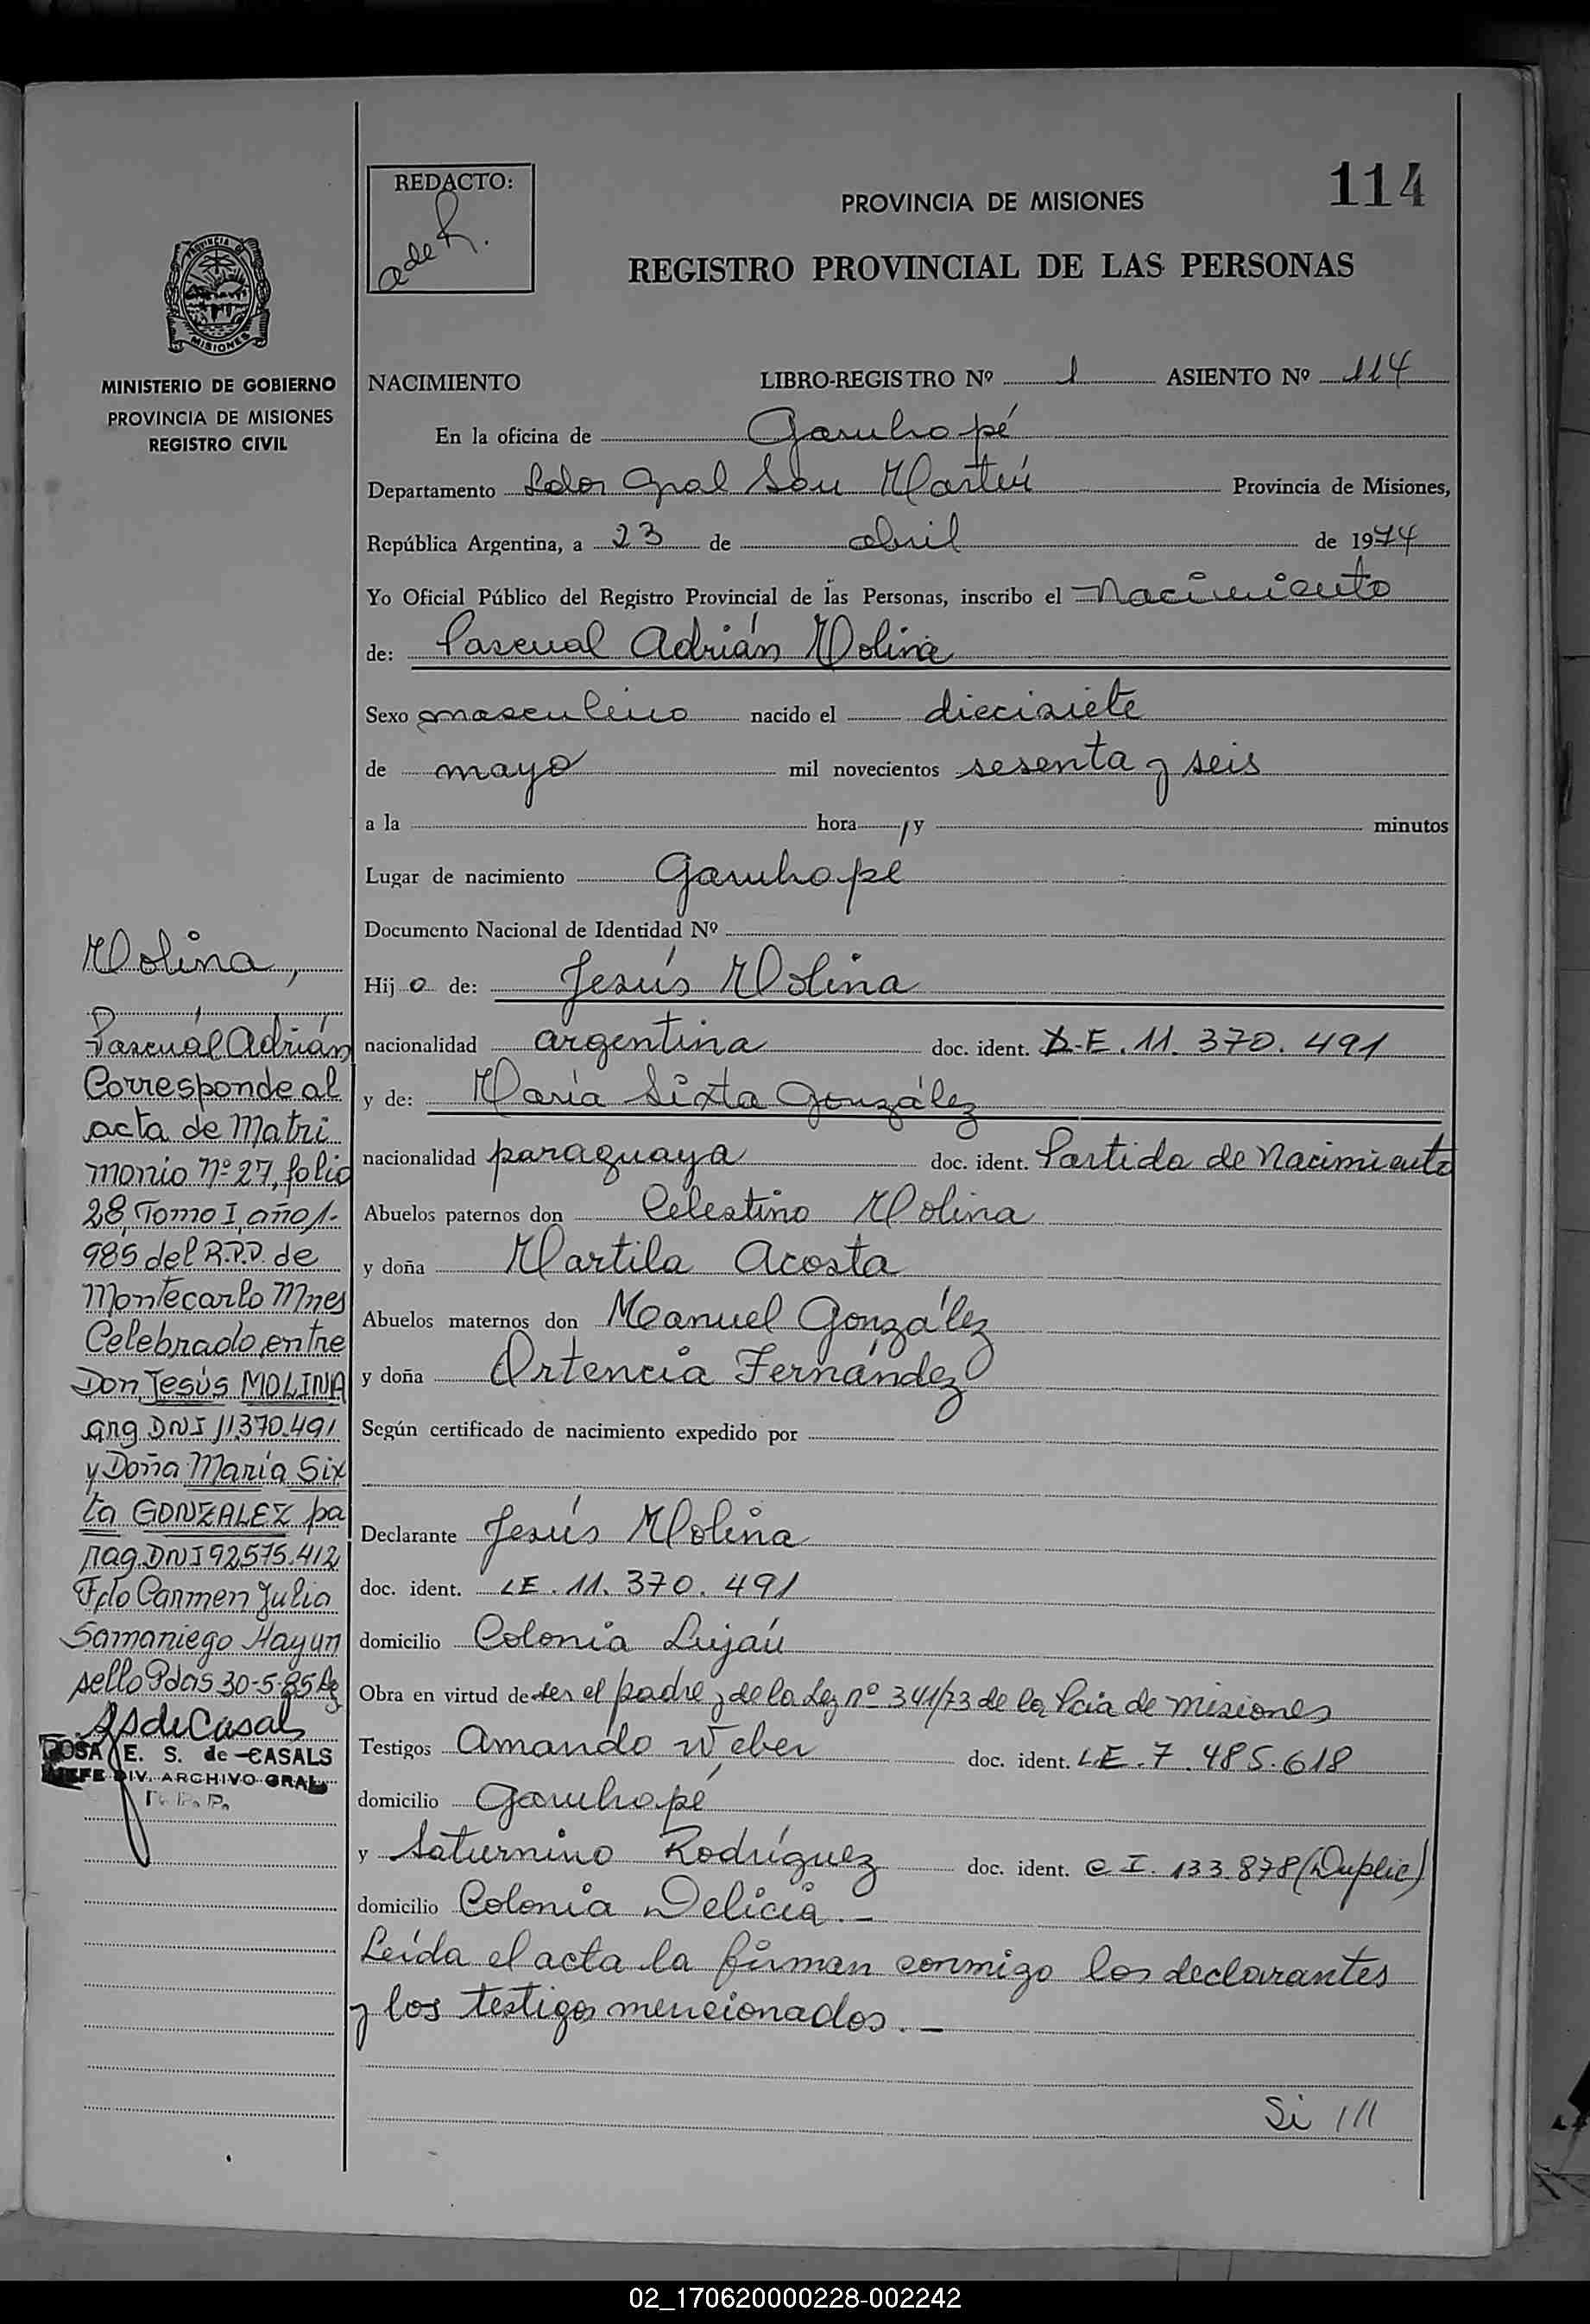 114
REDACTO:
a de R.
PROVINCIA DE MISIONES
REGISTRO PROVINCIAL DE LAS PERSONAS
PROVINCIA DE
MISIONES
MINISTERIO DE GOBIERNO
PROVINCIA DE MISIONES
REGISTRO CIVIL
NACIMIENTO LIBRO-REGISTRO Nº 1 ASIENTO Nº 114
En la oficina de Garuhapé
Departamento Ldor Gral San Martín Provincia de Misiones,
República Argentina, a 23 de abril de 1974
Yo Oficial Público del Registro Provincial de las Personas, inscribo el Nacimiento
de: Pascual Adrián Molina
Sexo masculino nacido el diecisiete
de mayo mil novecientos sesenta y seis
a la hora / y minutos
Lugar de nacimiento Garuhapé
Documento Nacional de Identidad Nº
Hij o de: Jesús Molina
nacionalidad argentina doc. ident. L.E. 11. 370. 491
y de: María Sixta González
nacionalidad paraguaya doc. ident. Partida de Nacimiento
Abuelos paternos don Celestino Molina
y doña Martila Acosta
Abuelos maternos don Manuel González
y doña Ortencia Fernández
Según certificado de nacimiento expedido por
Declarante Jesús Molina
doc. ident. LE. 11. 370. 491
domicilio Colonia Luján
Obra en virtud de ser el padre y de la Ley nº 341/73 de la Pcia de Misiones
Testigos Amando Weber doc. ident. L.E. 7. 485. 618
domicilio Garuhapé
y Saturnino Rodríguez doc. ident. C I. 133.878 (Duplic)
domicilio Colonia Delicia.-
Leída el acta la firman conmigo los declarantes
y los testigos mencionados.-
Si ///
Molina,
Pascuál Adrián
Corresponde al
acta de Matri
monio Nº 27, folio
28, Tomo I, año 1.
985 del R.P.P. de
Montecarlo Mnes
Celebrado entre
Don Jesús MOLINA
arg DNI 11.370.491
y Doña María Six
ta GONZALEZ pa
rag. DNI 92.575.412
Fdo Carmen Julia
Samaniego Hay un
sello Pdas 30-5-85
RS de Casals
ROSA E. S. de CASALS
JEFE DIV. ARCHIVO GRAL
R. P. P.
02_170620000228-002242